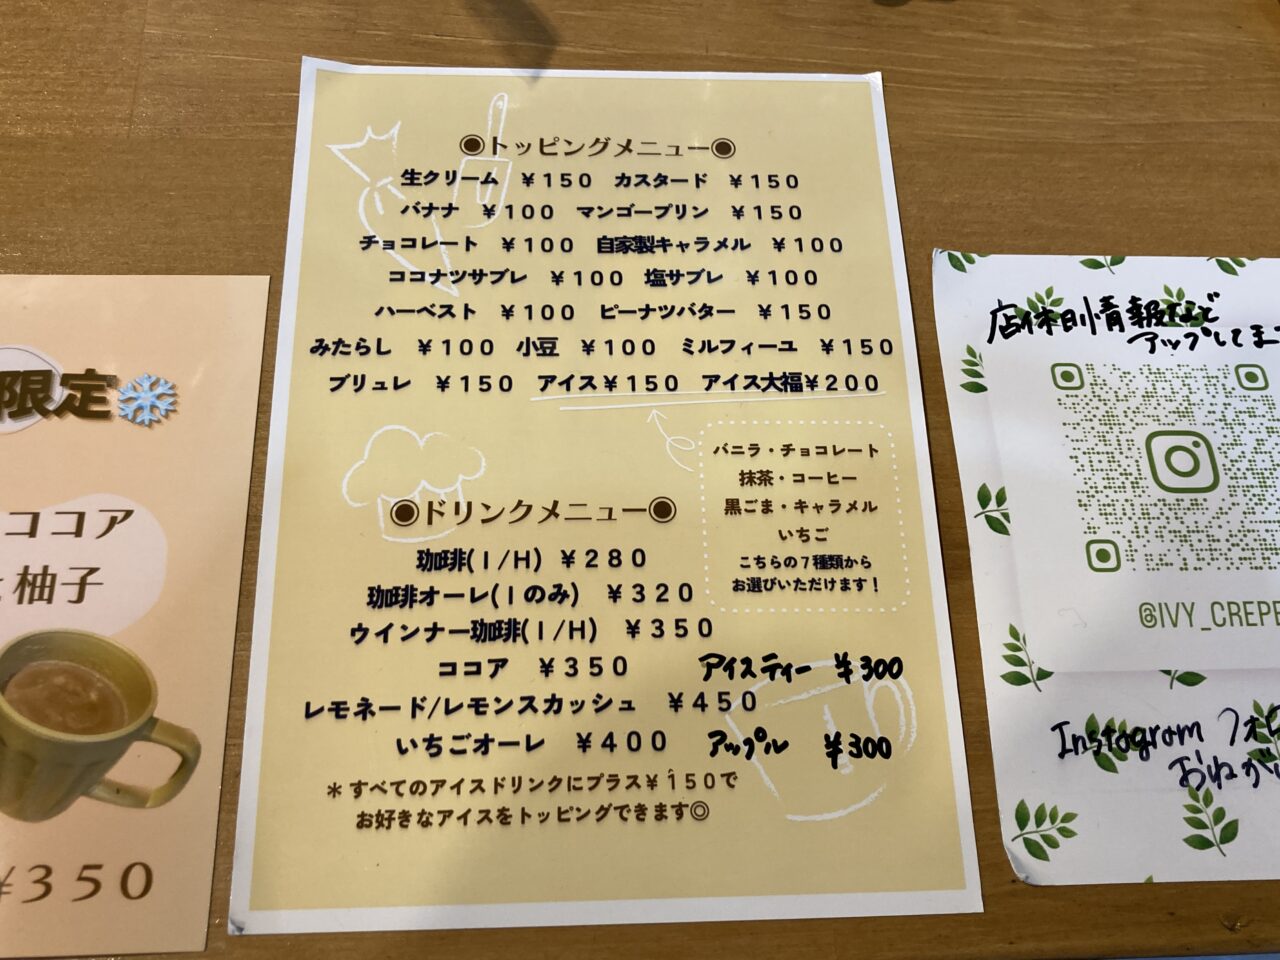 ◉トッピングメニュー◉
生クリーム ¥150 カスタード ¥150
バナナ ¥100 マンゴープリン ¥150
チョコレート ¥100 自家製キャラメル ¥100
ココナツサブレ ¥100 塩サブレ ¥100
ハーベスト ¥100 ピーナツバター ¥150
みたらし ¥100 小豆 ¥100 ミルフィーユ ¥150
ブリュレ ¥150 アイス¥150 アイス大福¥200
バニラ・チョコレート
抹茶・コーヒー
黒ごま・キャラメル
いちご
こちらの7種類から
お選びいただけます!
◉ドリンクメニュー◉
珈琲(I/H) ¥280
珈琲オーレ(Iのみ) ¥320
ウインナー珈琲(I/H) ¥350
ココア ¥350 アイスティー ¥300
レモネード/レモンスカッシュ ¥450
いちごオーレ ¥400 アップル ¥300
*すべてのアイスドリンクにプラス¥150で
お好きなアイスをトッピングできます◎
限定
ココア
柚子
¥350
店休日情報など
アップしてま
@IVY_CREPE
Instagram フォロ
おねがい